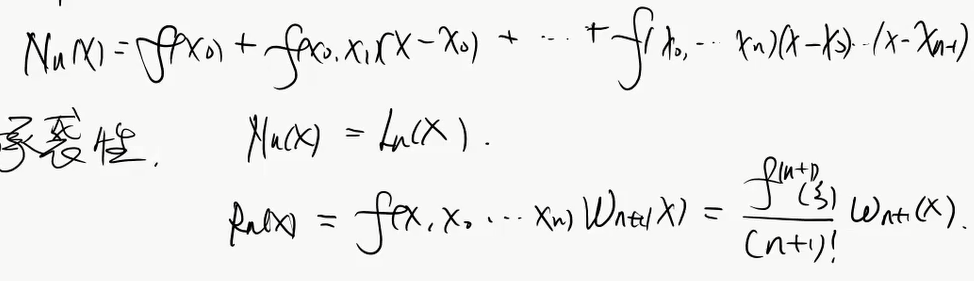 Nn(x) = f(x0) + f(x0, x1)(x-x0) + ... + f(x0, ... xn)(x-x0)...(x-xn-1)
承袭性. Nn(x) = Ln(x).
Rn(x) = f(x, x0 ... xn) Wn+1(x) = f^(n+1)(ξ) / (n+1)! ωn+1(x).